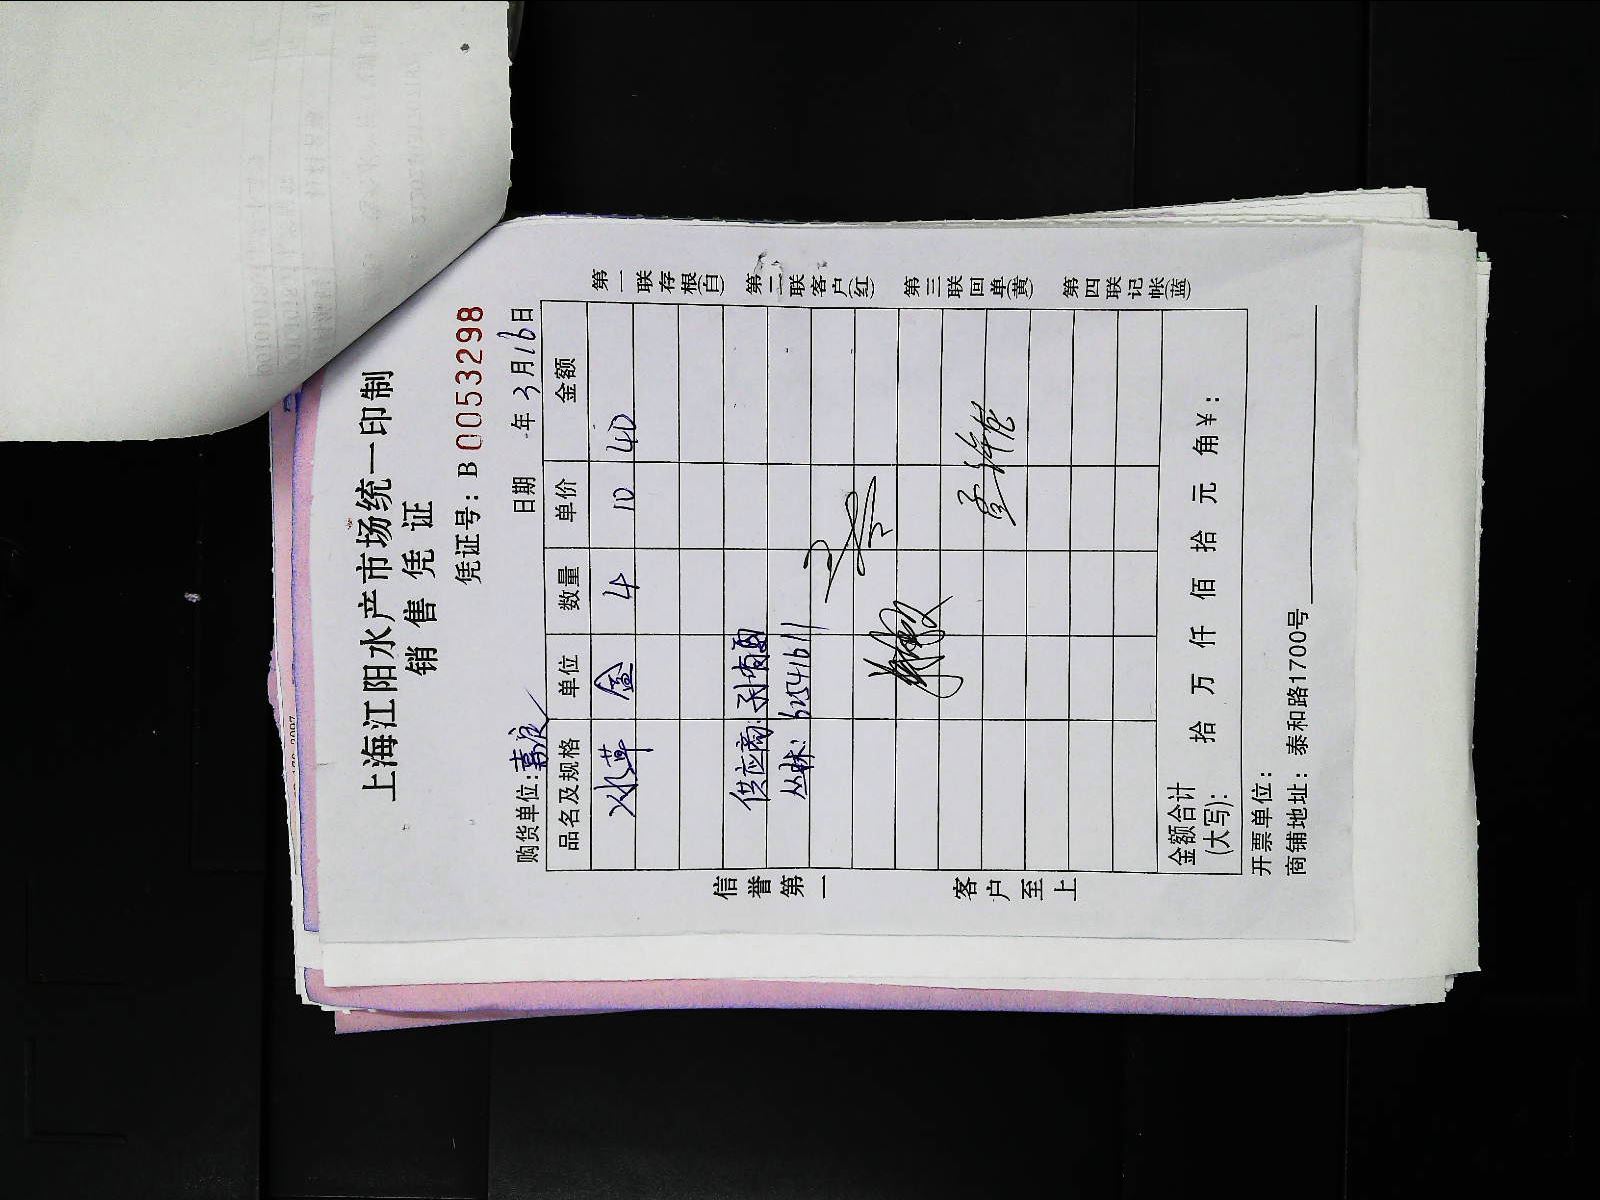 上海江阳水产市场统一印制
销售凭证
凭证号：B0053298
购货单位：
日期 年3月16日
品名及规格 单位 数量 单价 金额
水草 盒 4 10 40
供应商：
丛林：62541611
金额合计
(大写)： 拾 万 仟 佰 拾 元 角 ￥：
开票单位：
商铺地址：泰和路1700号
信誉第一
客户至上
第一联存根(白)
第二联客户(红)
第三联回单(黄)
第四联记帐(蓝)